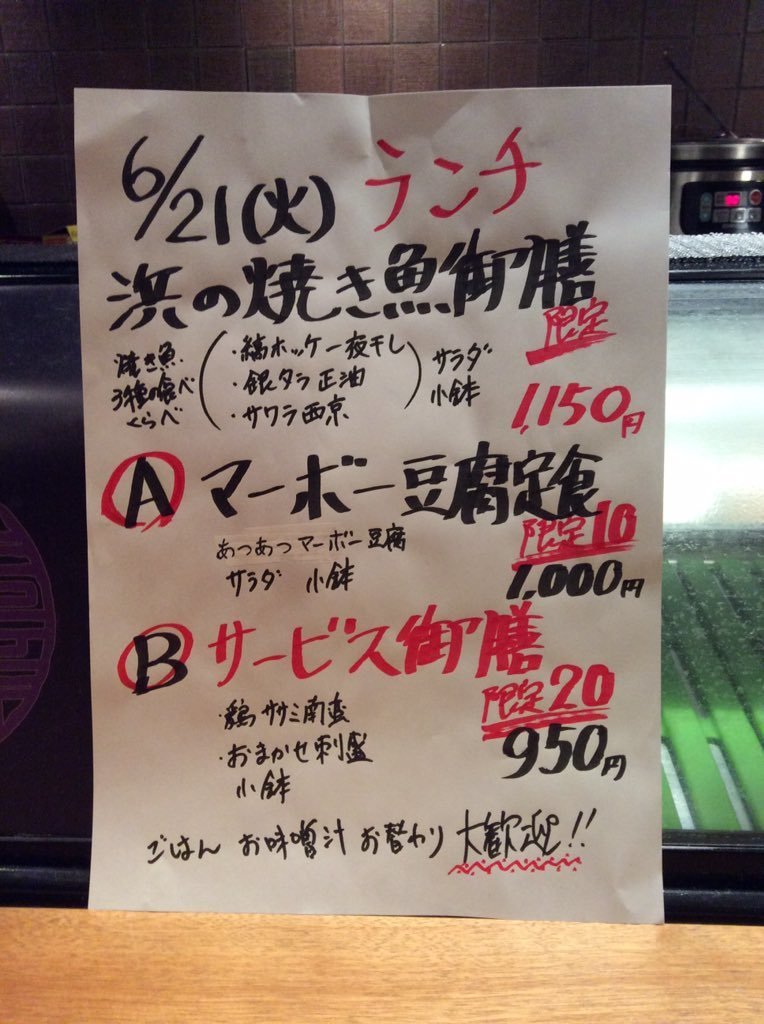 6/21(火) ランチ
浜の焼き魚御膳
限定
焼き魚
3種の食べ
くらべ
・縞ホッケ一夜干し
・銀タラ正油
・サワラ西京
サラダ
小鉢
1,150円
A マーボー豆腐定食
限定10
あつあつマーボー豆腐
サラダ 小鉢
1,000円
B サービス御膳
限定20
・鶏ササミ南蛮
・おまかせ刺盛
小鉢
950円
ごはん お味噌汁 お替わり 大歓迎!!